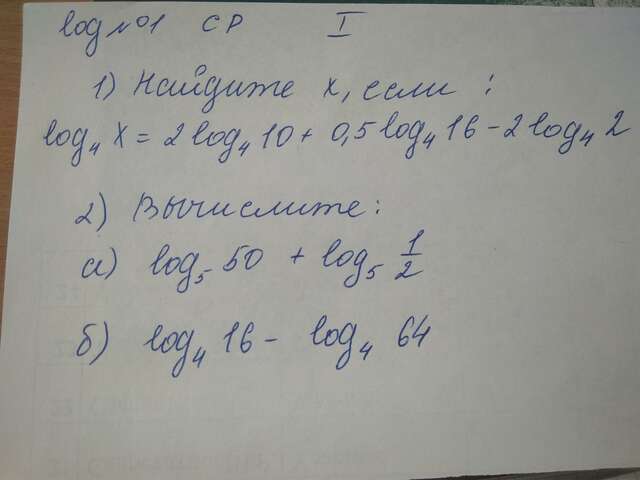 log №1 СР I
1) Найдите x, если :
log₄ X = 2 log₄ 10 + 0,5 log₄ 16 - 2 log₄ 2
2) Вычислите :
а) log₅ 50 + log₅ 1/2
б) log₄ 16 - log₄ 64